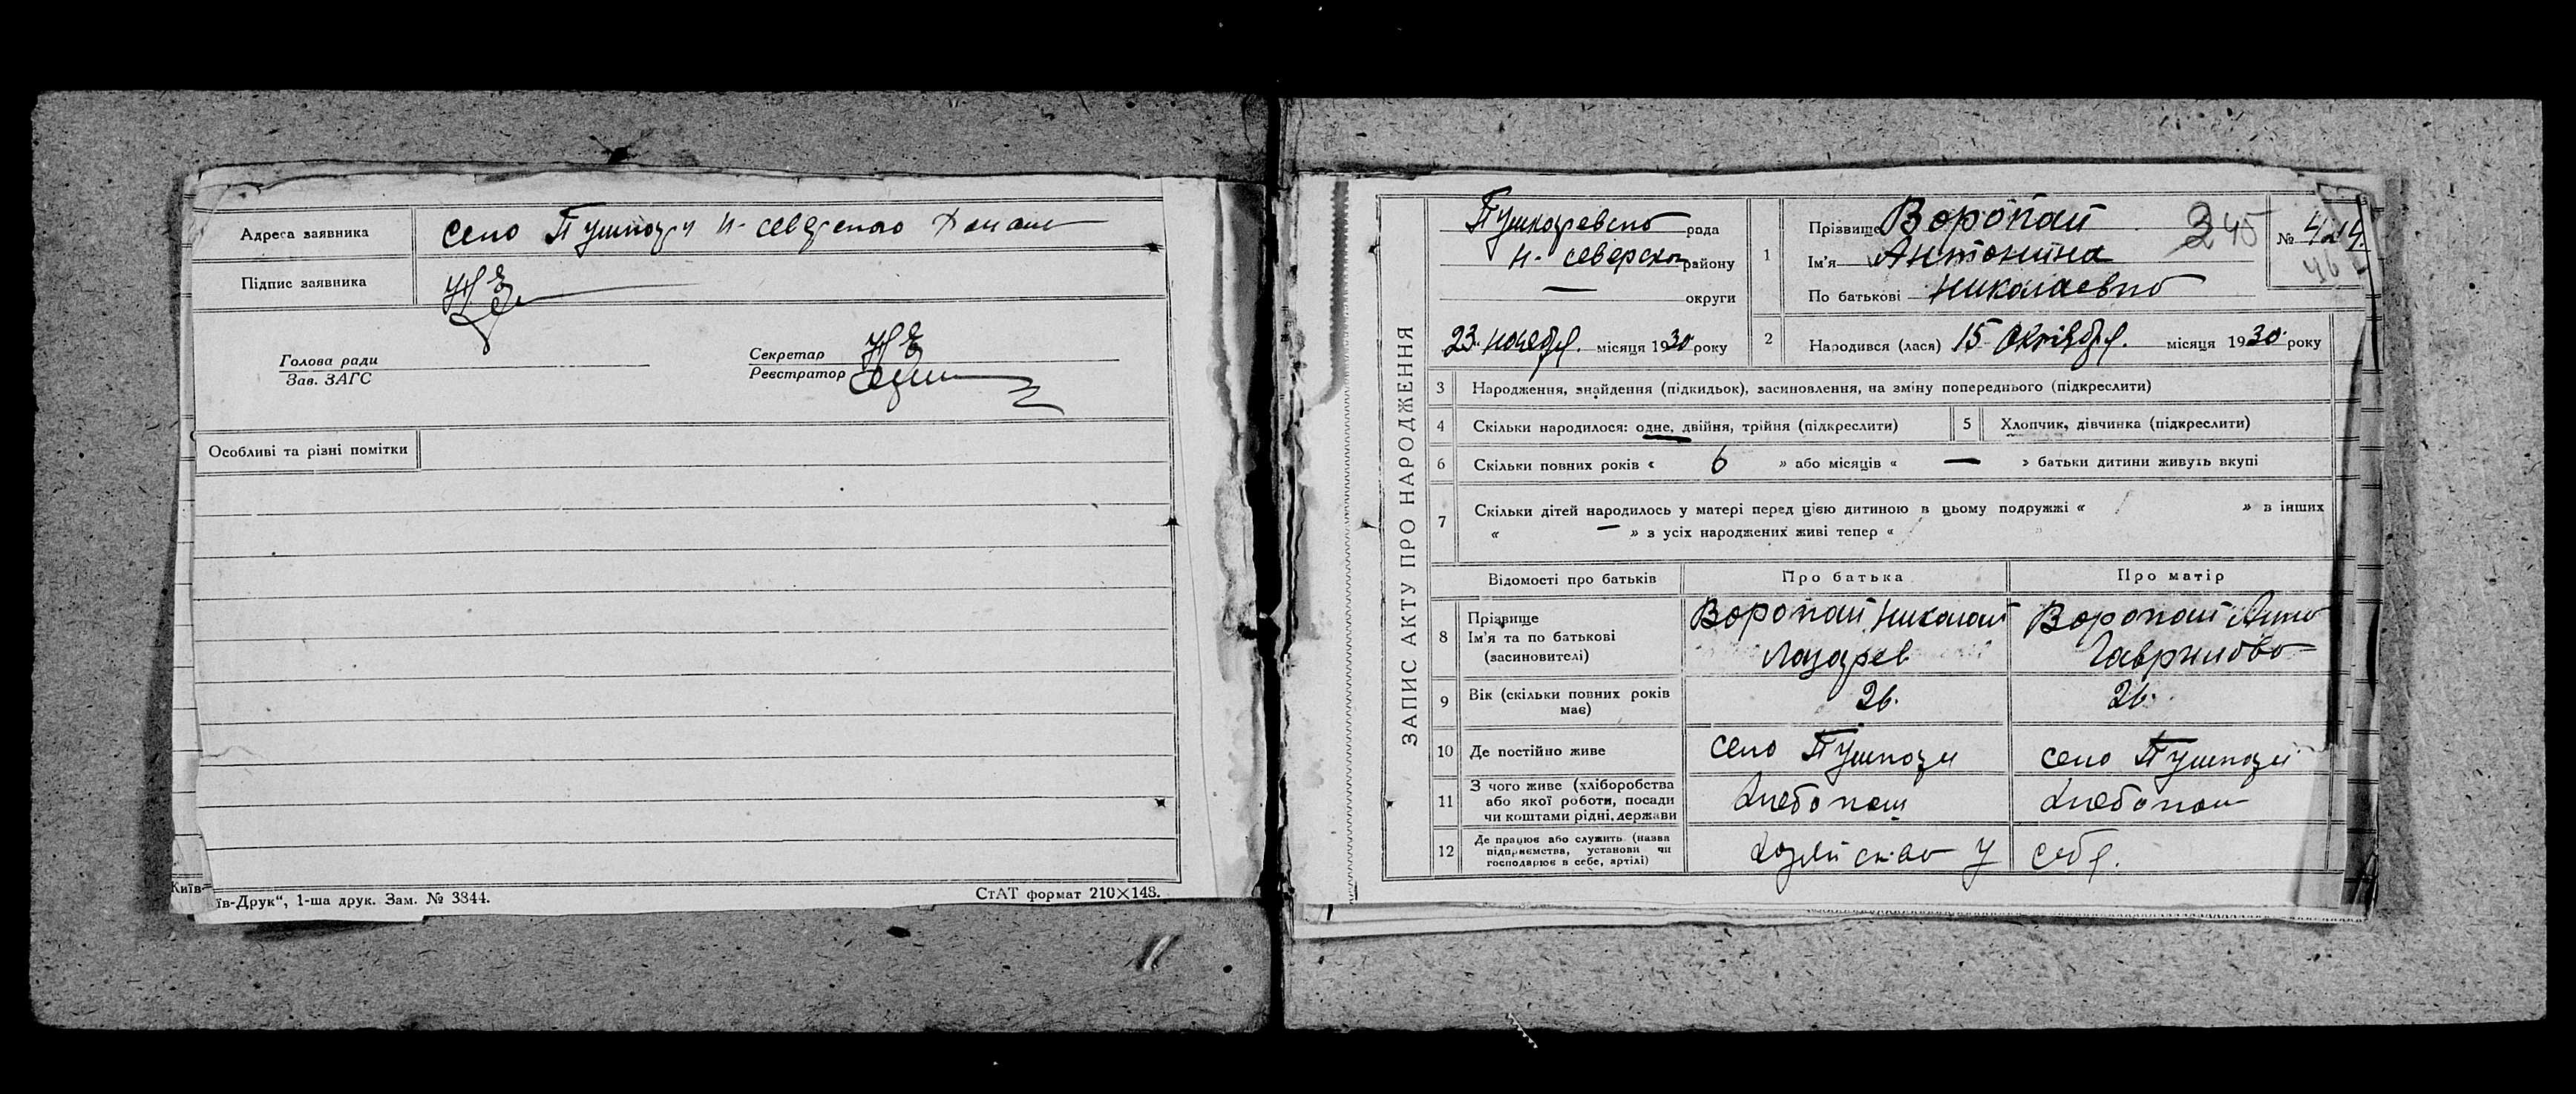 Адреса заявника село Пушкари н-северского
Підпис заявника
Голова ради
Зав. ЗАГС
Секретар
Реєстратор
Особливі та різні помітки
Київ-
їв-Друк“, 1-ша друк. Зам. № 3844.
СтАТ формат 210×148.
ЗАПИС АКТУ ПРО НАРОДЖЕННЯ
Пушкаревско рада
н-северско району
— округи
23 ноября місяця 1930 року
1 Прізвище Воропай
Ім'я Антонина
По батькові Николаевно
345
№
2 Народився (лася) 15 Октября місяця 1930 року
3 Народження, знайдення (підкидьок), засиновлення, на зміну попереднього (підкреслити)
4 Скільки народилося: одне, двійня, трійня (підкреслити)
5 Хлопчик, дівчинка (підкреслити)
6 Скільки повних років « 6 » або місяців « — » батьки дитини живуть вкупі
7 Скільки дітей народилось у матері перед цією дитиною в цьому подружжі « » в інших
« — » з усіх народжених живі тепер «
Відомості про батьків Про батька Про матір
8 Прізвище
Ім'я та по батькові
(засиновителі)
Воропай Николай
Лазарев
Воропай Анно
Гаврилово
9 Вік (скільки повних років
має)
26. 26.
10 Де постійно живе село Пушкари село Пушкари
11 З чого живе (хліборобства
або якої роботи, посади
чи коштами рідні, держави
Хлебопаш Хлебопаш
12 Де працює або служить (назва
підприємства, установи чи
господарює в себе, артілі)
Хозяйство у себя.